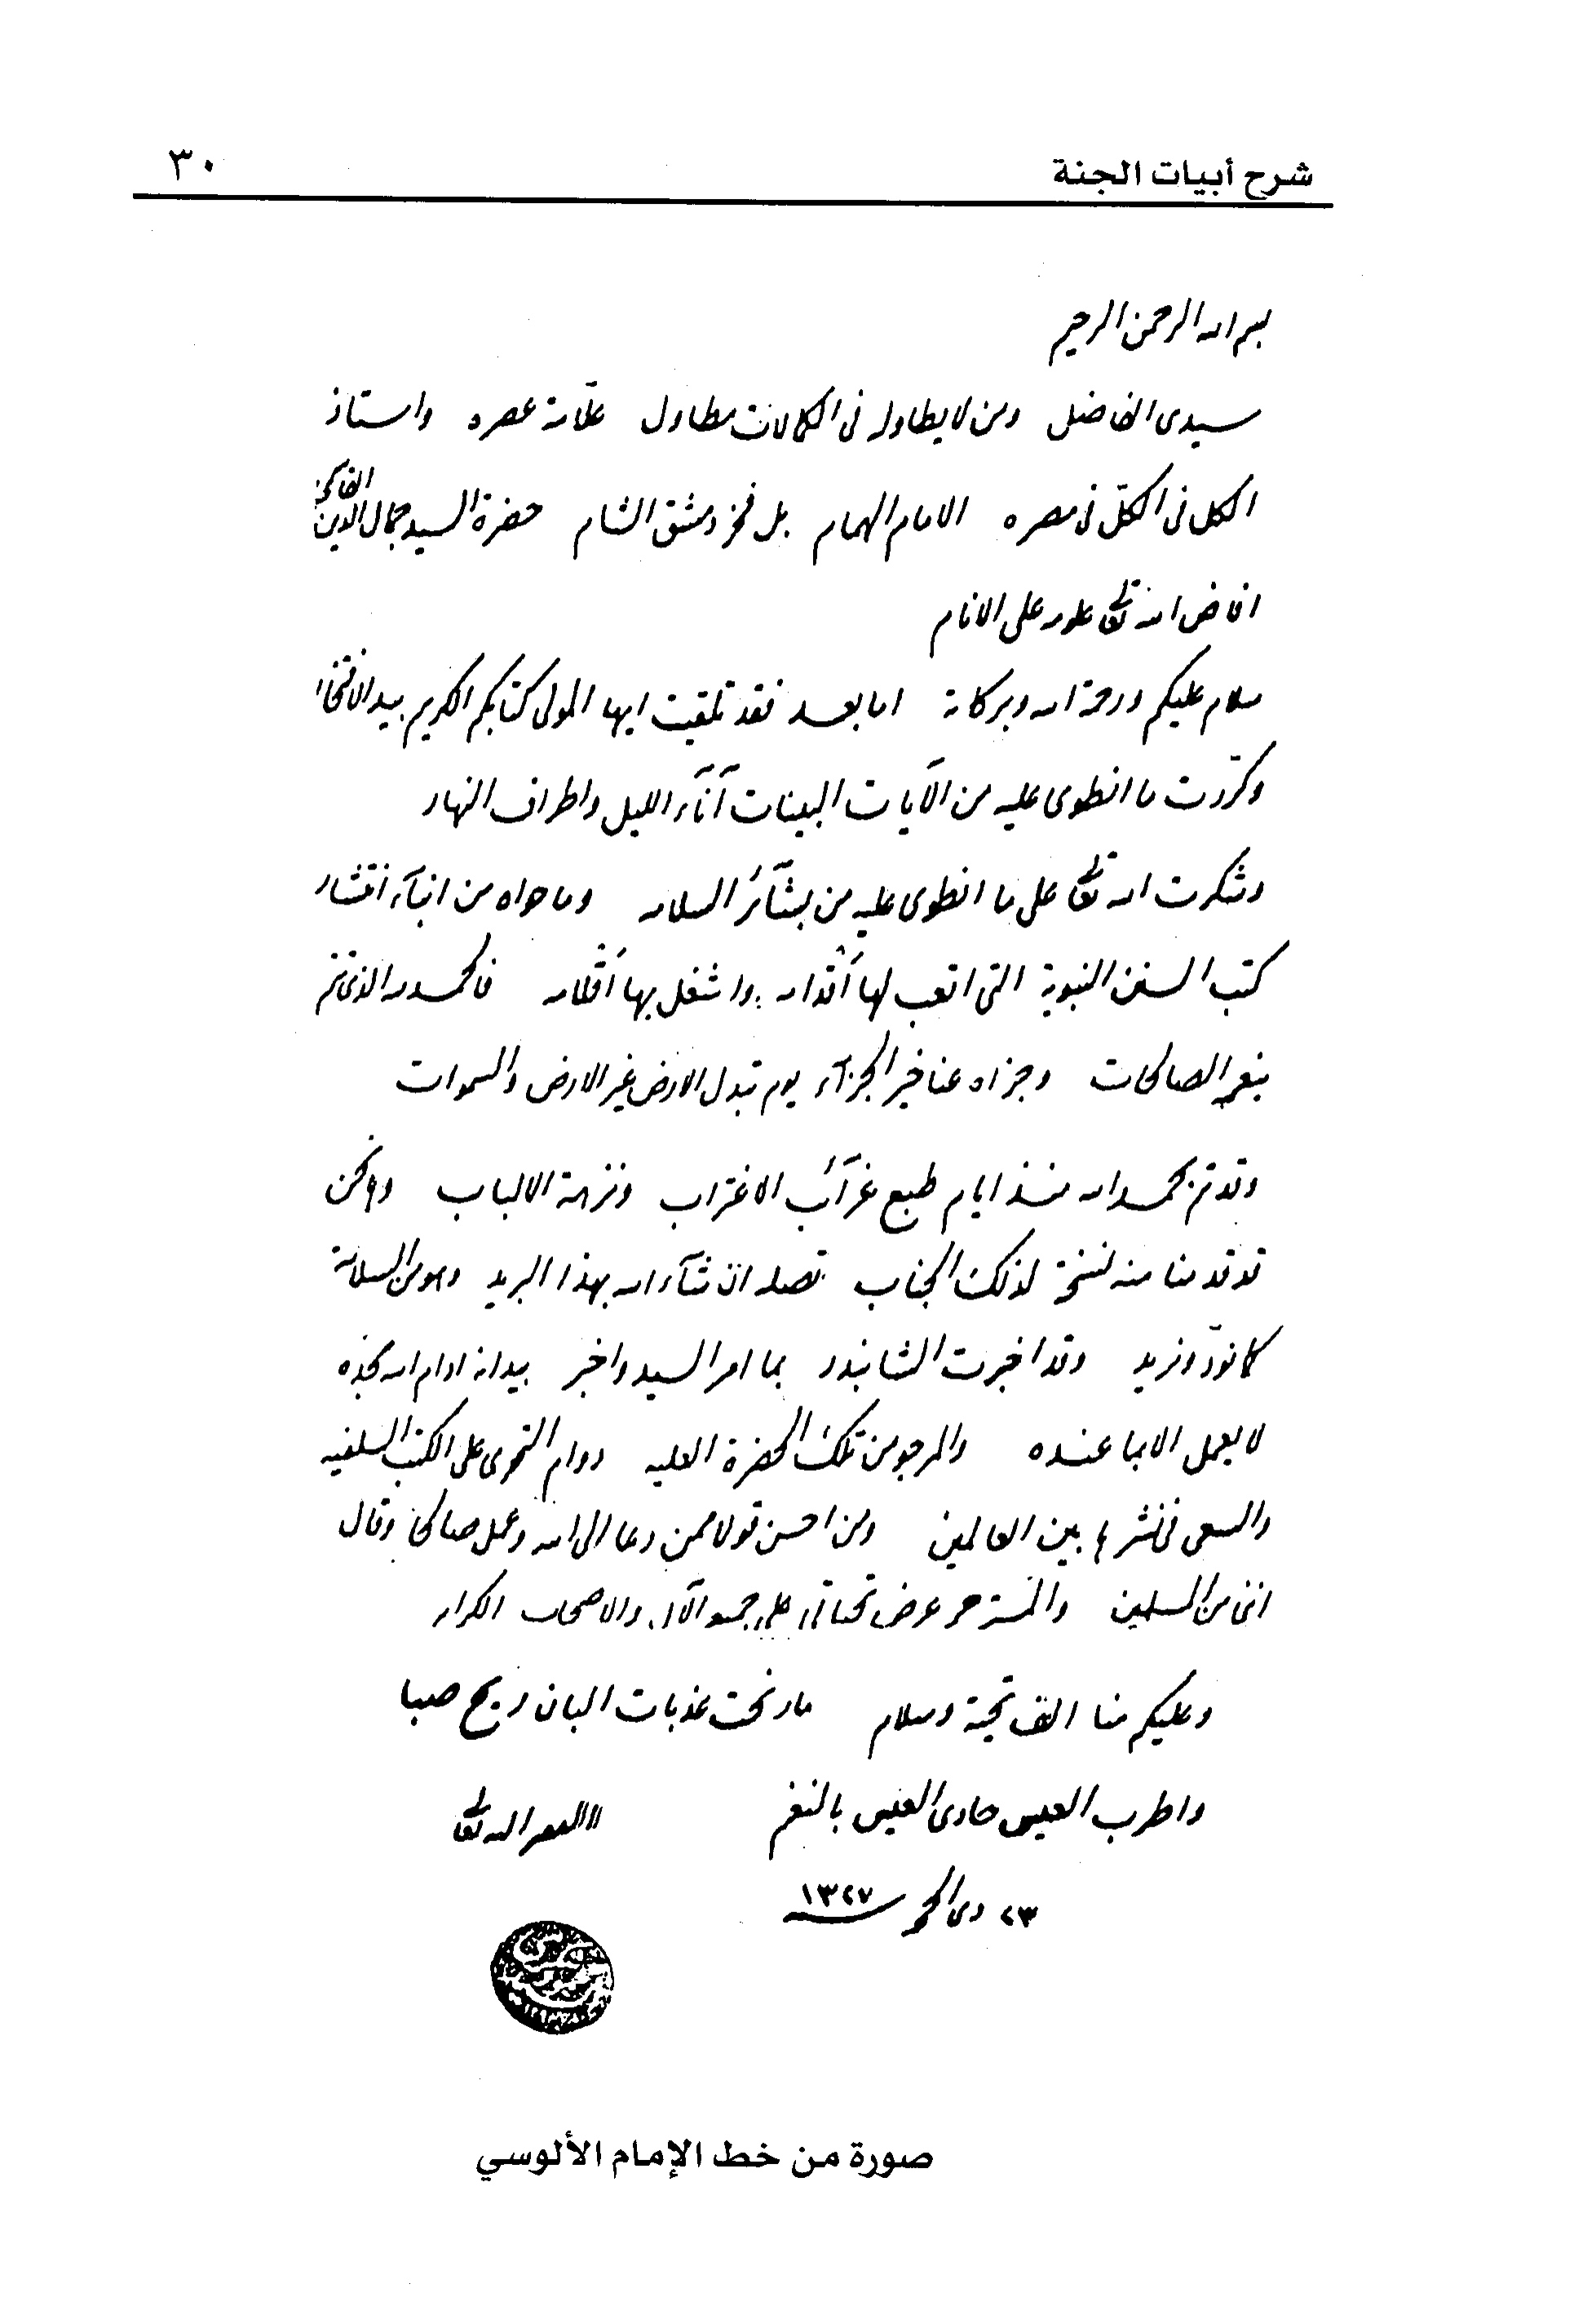 شرح أبيات الجنة
٣٠
بسم الله الرحمن الرحيم
سيدى الفاضل ومن لا يطاوله فى الكمالات مطاول علّامة عصره واستاذ
الكل فى الكلّ فى مصره الامام الهمام بل فخر دمشق الشام حضرة السيد جمال الدين القاسمى
افاض الله تعالى علومه على الانام
سلام عليكم ورحمة الله وبركاته اما بعد فقد تلقيت ايها المولى كتابكم الكريم بيد الافتخار
وكرّرت ما انطوى عليه من الآيات البينات آنآء الليل واطراف النهار
وشكرت الله تعالى على ما انطوى عليه من بشآئر السلامه وما حواه من انبآء انتشار
كتب السنن النبوية التى اتعب لها أقدامه واشغل بها أقلامه فالحمد لله الذى تتم
بنعمه الصالحات وجزاه عنا خير الجزآء يوم تبدل الارض غير الارض والسموات
وقد تم بحمد الله منذ ايام طبع غرآئب الاغتراب ونزهة الالباب ونحن
قد قدمنا منه نسخة لذلك الجناب تصله ان شآء الله بهذا البريد وهو من السلامة
كما نودّ ونريد وقد اخبرت الشابندر بما امر السيد واخبر بيد انه ادام الله مجده
لا يعمل الا بما عنده والمرجو من تلك الحضرة العليه دوام التحرى على الكتب السلفيه
والسعى فى نشرها بين العالمين ومن احسن قولا ممن دعا الى الله وعمل صالحا وقال
اننى من المسلمين والمسترحم عرض تحياتى على جميع الآل والاصحاب الكرام
وعليكم منا الف تحية وسلام ما رنحت عذبات البان ريح صبا
واطرب العيس حادى العيس بالنغم الفقير اليه تعالى
٢٣ ذى الحجه ١٣٢٧
صورة من خط الإمام الألوسي